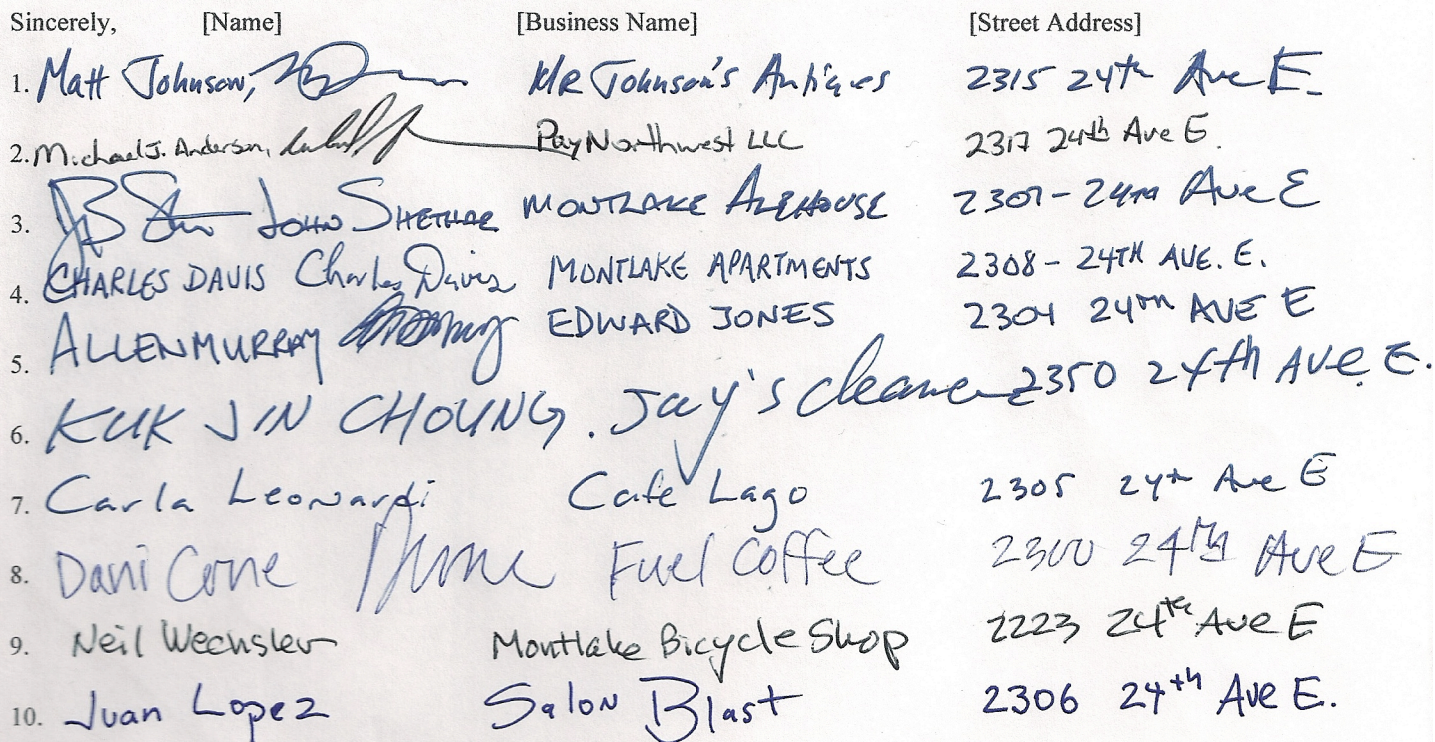 Sincerely, [Name] [Business Name] [Street Address]
1. Matt Johnson, Mr Johnson's Antiques 2315 24th Ave E.
2. Michael J. Anderson, PayNorthwest LLC 2317 24th Ave E.
3. JOHN SHETHAR MONTLAKE ALEHOUSE 2307 - 24TH AVE E
4. CHARLES DAVIS Charles Davis MONTLAKE APARTMENTS 2308 - 24TH AVE. E.
5. ALLEN MURRAY EDWARD JONES 2304 24TH AVE E
6. KUK JIN CHOUNG. Jay's cleaner 2350 24th AVE E.
7. Carla Leonardi Cafe Lago 2305 24th Ave E
8. Dani Cone Fuel Coffee 2300 24th Ave E
9. Neil Wechsler Montlake Bicycle Shop 2223 24th Ave E
10. Juan Lopez Salon Blast 2306 24th Ave E.